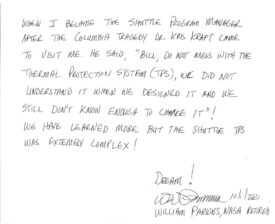 WHEN I BECAME THE SHUTTLE PROGRAM MANAGER
AFTER THE COLUMBIA TRAGEDY DR. KRIS KRAFT CAME
TO VISIT ME. HE SAID, "BILL, DO NOT MESS WITH THE
THERMAL PROTECTION SYSTEM (TPS), WE DID NOT
UNDERSTAND IT WHEN WE DESIGNED IT AND WE
STILL DON'T KNOW ENOUGH TO CHANGE IT"!
WE HAVE LEARNED MORE BUT THE SHUTTLE TPS
WAS EXTEMELY COMPLEX!
DREAM!
10/6/2021
WILLIAM PARSONS, NASA RETIRED